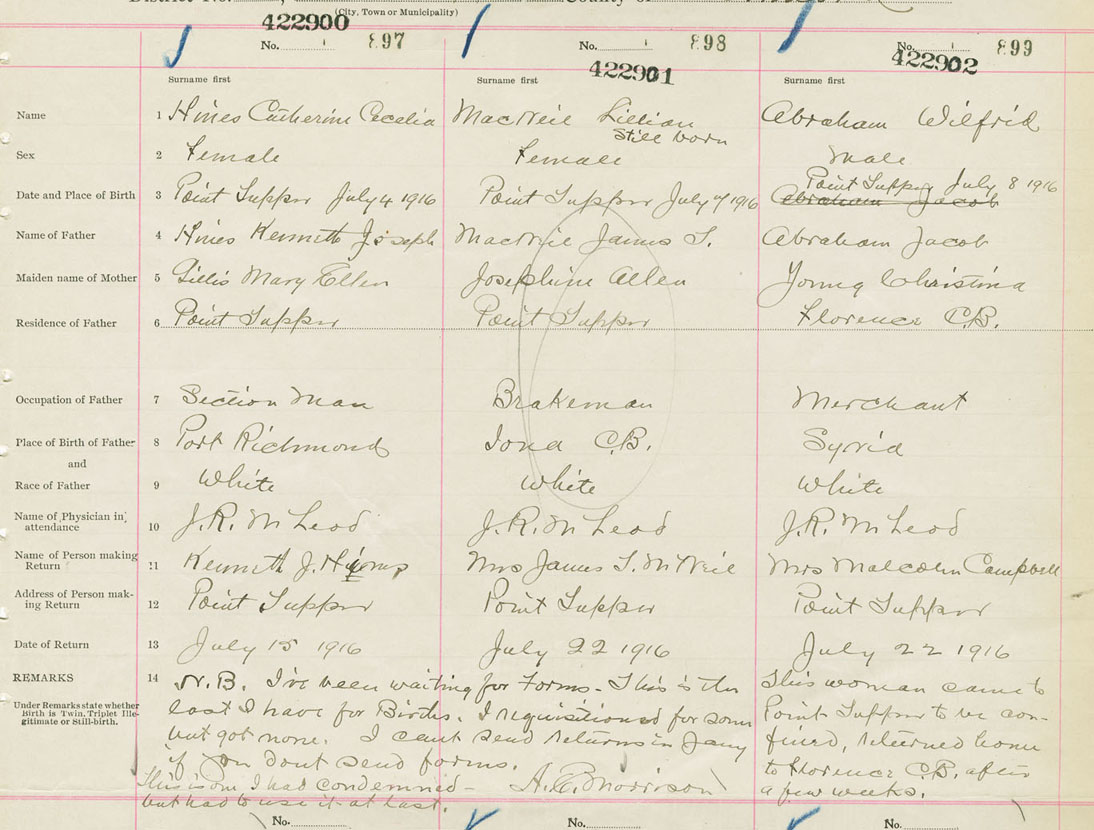 District No. County of
(City, Town or Municipality)
422900
No. 897 No. 898 No. 899
422901 422902
Surname first Surname first Surname first
Name 1 Hines Catherine Cecelia MacNeil Lillian Abraham Wilfrid
Still born
Sex 2 Female Female Male
Point Tupper July 8 1916
Date and Place of Birth 3 Point Tupper July 4 1916 Point Tupper July 7 1916 Abraham Jacob
Name of Father 4 Hines Kenneth Joseph MacNeil James S. Abraham Jacob
Maiden name of Mother 5 Gillis Mary Ellen Josephine Allen Young Christina
Residence of Father 6 Point Tupper Point Tupper Florence C.B.
Occupation of Father 7 Section Man Brakeman Merchant
Place of Birth of Father 8 Port Richmond Iona C.B. Syria
and
Race of Father 9 White White White
Name of Physician in attendance 10 J.R. McLeod J.R. McLeod J.R. McLeod
Name of Person making Return 11 Kenneth J. Mrs James S. McNeil Mrs Malcolm Campbell
Address of Person making Return 12 Point Tupper Point Tupper Point Tupper
Date of Return 13 July 15 1916 July 22 1916 July 22 1916
REMARKS 14 N.B. I've been waiting for Forms - This is the
Under Remarks state whether Birth is Twin, Triplet Illegitimate or Still-birth.
last I have for Births. I requisitioned for some
but got none. I cant send returns in Jany
if you dont send forms.
This is one I had condemned - A.C. Morrison
but had to use it at last.
This woman came to
Point Tupper to be con-
fined, returned home
to Florence C.B. after
a few weeks.
No. No. No.